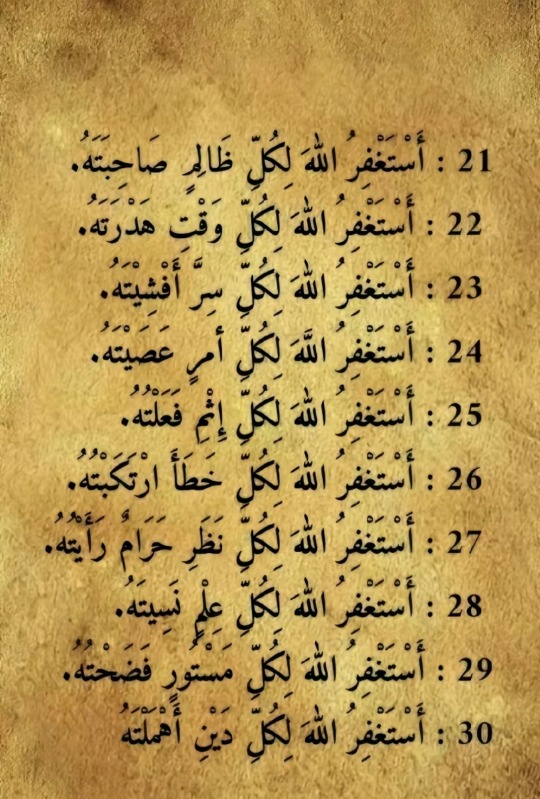 21 : أَسْتَغْفِرُ اللهَ لِكُلِّ ظَالِمٍ صَاحِبَتَهُ.
22 : أَسْتَغْفِرُ اللهَ لِكُلِّ وَقْتِ هَدْرَتَهُ.
23 : أَسْتَغْفِرُ اللهَ لِكُلِّ سِرَّ أَفْشِيْتَهُ.
24 : أَسْتَغْفِرُ اللَّهَ لِكُلِّ أمرٍ عَصَيْتَه.
25 : أَسْتَغْفِرُ اللهَ لِكُلِّ إِثْمِ فَعَلْتُهُ.
26 : أَسْتَغْفِرُ اللهَ لِكُلِّ خَطَأَ ارْتَكَبْتُهُ.
27 : أَسْتَغْفِرُ اللهَ لِكُلِّ نَظَرِ حَرَامٌ رَأَيْتُهُ.
28 : أَسْتَغْفِرُ اللهَ لِكُلِّ عِلْمٍ نَسِيتَهُ.
29 : أَسْتَغْفِرُ اللهَ لِكُلِّ مَسْتُورٍ فَضَحْتُهُ.
30 : أَسْتَغْفِرُ اللهَ لِكُلِّ دَيْنِ أَهْمَلْتَهُ